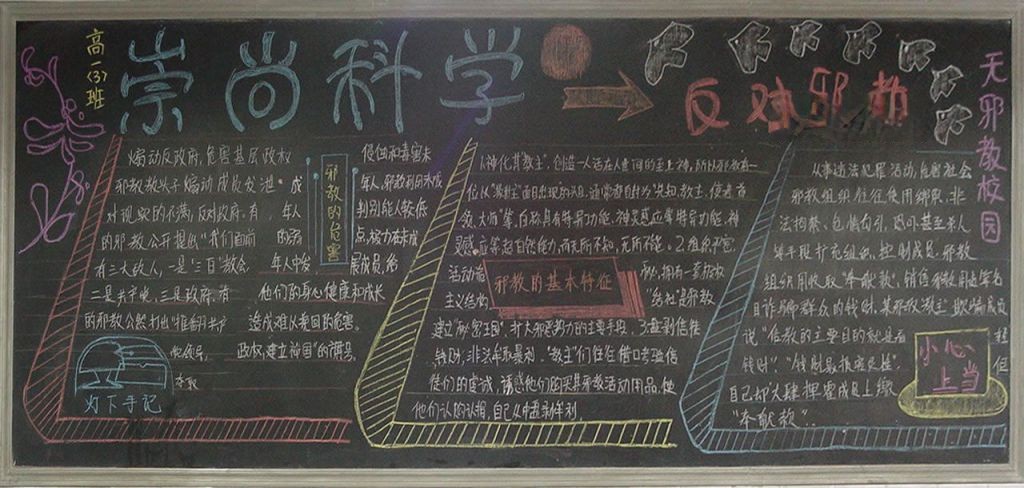 高一(3)班
崇尚科学
反对邪教
无邪教校园
煽动反政府,危害基层政权
邪教教头子煽动成员发泄
对现实的不满,反对政府.有
的邪教公开提出“我们面前
有三大敌人,一是“三自”教会.
二是共产党,三是政府.有
的邪教公然打出“推翻共产
党领导,
政权,建立神国”的旗号.
灯下手记
邪教的危害
侵蚀和毒害未
成年人.邪教利用未成
年人判别能人较低
的弱点,极力在未成
年人中发展成员,给
他们的身心健康和成长
造成难以挽回的危害.
1.神化其“教主”.创造一个活在人世间的至上神,所以邪教有一
位以“教主”面目出现的头目.通常都自封为“先知、教主、使者、首
领、大师”等,自称具有特异功能、神灵感应等特异功能、神
灵感应等超自然能力,而无所不知,无所不能。2.组织严密
活动诡秘,拥有一套
主义结构
邪教的基本特征
建立“秘密王国”,扩大邪恶势力的主要手段.3.盘剥信徒
钱财,非法牟取暴利.“教主”们往往借口考验信
徒们的虔诚,诱惑他们购买其邪教活动用品,使
他们
从事违法犯罪活动,危害社会
邪教组织往往使用绑架、非
法拘禁、色情勾引、恐吓甚至杀人
等手段扩充组织,控制成员.邪教
组织用收取“奉献款”、销售邪教用品等名
目诈骗群众的钱财.某邪教“教主”欺骗成员
说“信教的主要目的就是看
轻钱财”、“钱财最报应灵性”,但
自己却大肆挥霍成员上缴
“奉献款”.
小心
上当